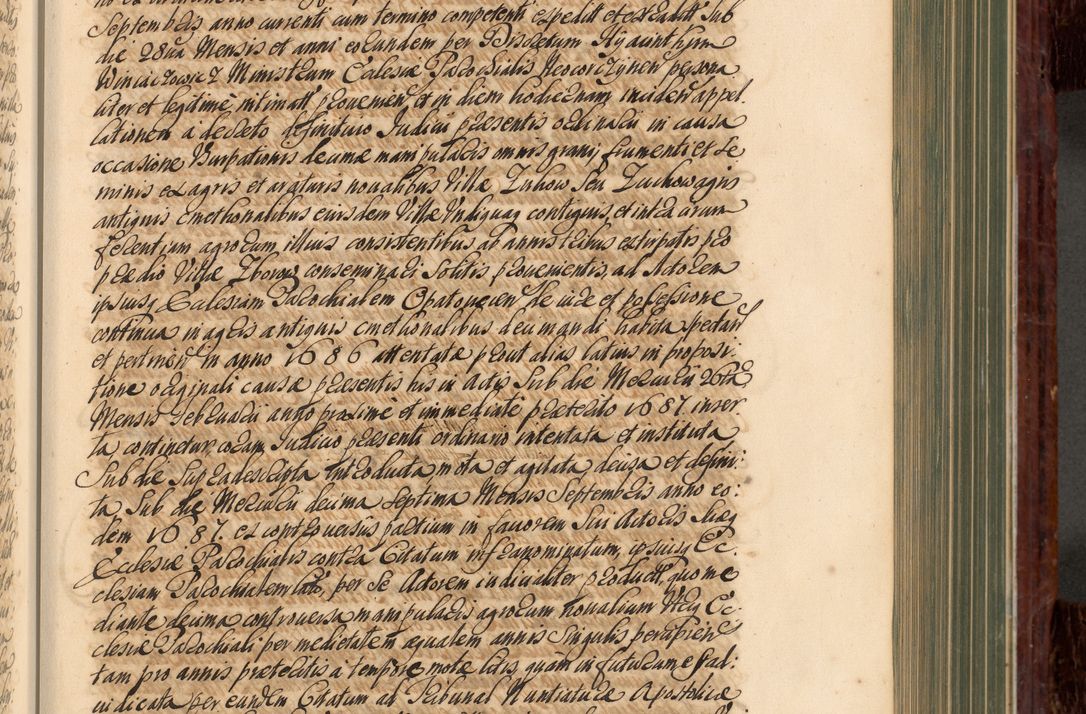 Septembris anno currenti cum termino competenti expeditt et extraditt Sub
die 28va Mensis et anni eorundem per Discretum Hyacinthum
Ministrum Ecclesiæ Parochialis persona
liter et legitime intimatt provenien, et in diem hodiernam inciden appel
lationem a decreto definitivo Iudicii præsentis ordinarii in causa
occasione Vsurpationis decimæ manipularis omnis grani frumenti et se
minis ex agris et araturis novalibus Villæ Zuchow seu Zuchow agris
antiquis cmethonalibus eiusdem Villæ Vndiquaq contiguis, et intra arum
ferentiam agrorum illius consistentibus ab annis tribus extirpatis pro
prædio Villæ Zborow conseminari Solitis provenientis, ad Actorem
ipsiusq Ecclesiam Parochialem Opatovecen de iure et possessione
continua in agris antiquis cmethonalibus decimandi habita spectan
et pertinen in anno 1686 attentatæ prout alias latius in proposi:
tione originali causæ præsentis his in Actis Sub die Mercurii 26ta
Mensis Februarii anno proxime et immediate præterito 1687 inser
ta continetur coram Iudicio præsenti ordinario intentata et instituta
Sub die Supradescripta introducta mota et agitata decisa et defini:
ta Sub die Mercurii decima septima Mensis Septembris anno eo:
dem 1687. ex controversiis partium in favorem Sui Actoris Suæq
Ecclesiæ Parochialis contra Citatum infranominatum, ipsiusq Ec:
clesiam Parochialem lato, per Se Actorem iudicialiter productt, quo me
diante decima controversa manipularis agrorum novalium Ecc:
clesiæ Parochiali per medietatem æqualem annis Singulis percipien
tam pro annis præteritis a tempore motæ litis, quam in futurum
iudicata per eundem Citatum ad Tribunal Nuntiaturæ Apostolicæ